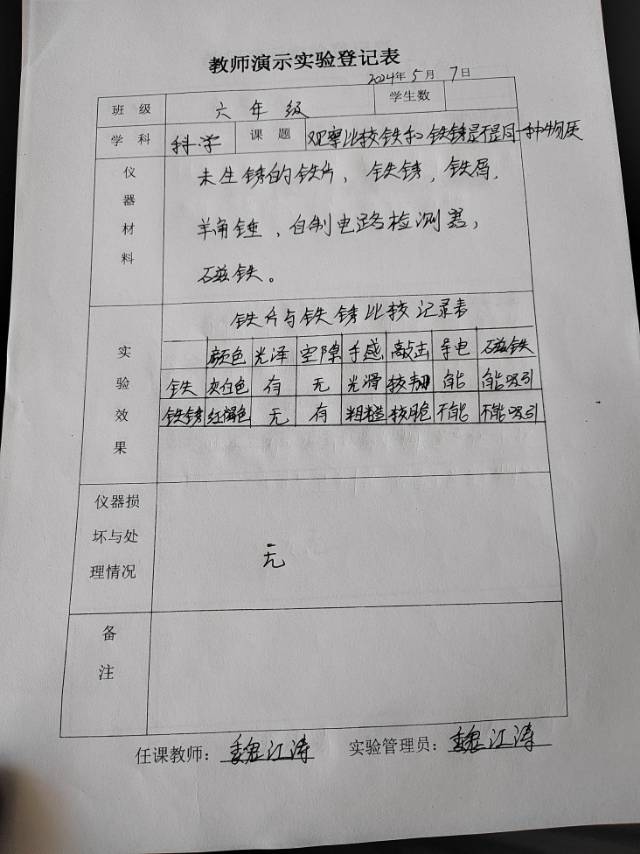 教师演示实验登记表
2024年5月7日
班级 六年级 学生数
学科 科学 课题 观察比较铁和铁锈是不是同一种物质
仪器材料
未生锈的铁片、铁锈,铁屑,
羊角锤、自制电路检测器,
磁铁。
实验效果
铁片与铁锈比较记录表
颜色 光泽 空隙 手感 敲击 导电 磁铁
铁 灰白色 有 无 光滑 较韧 能 能吸引
铁锈 红褐色 无 有 粗糙 较脆 不能 不能吸引
仪器损坏与处理情况
无
备注
任课教师:魏江涛 实验管理员:魏江涛